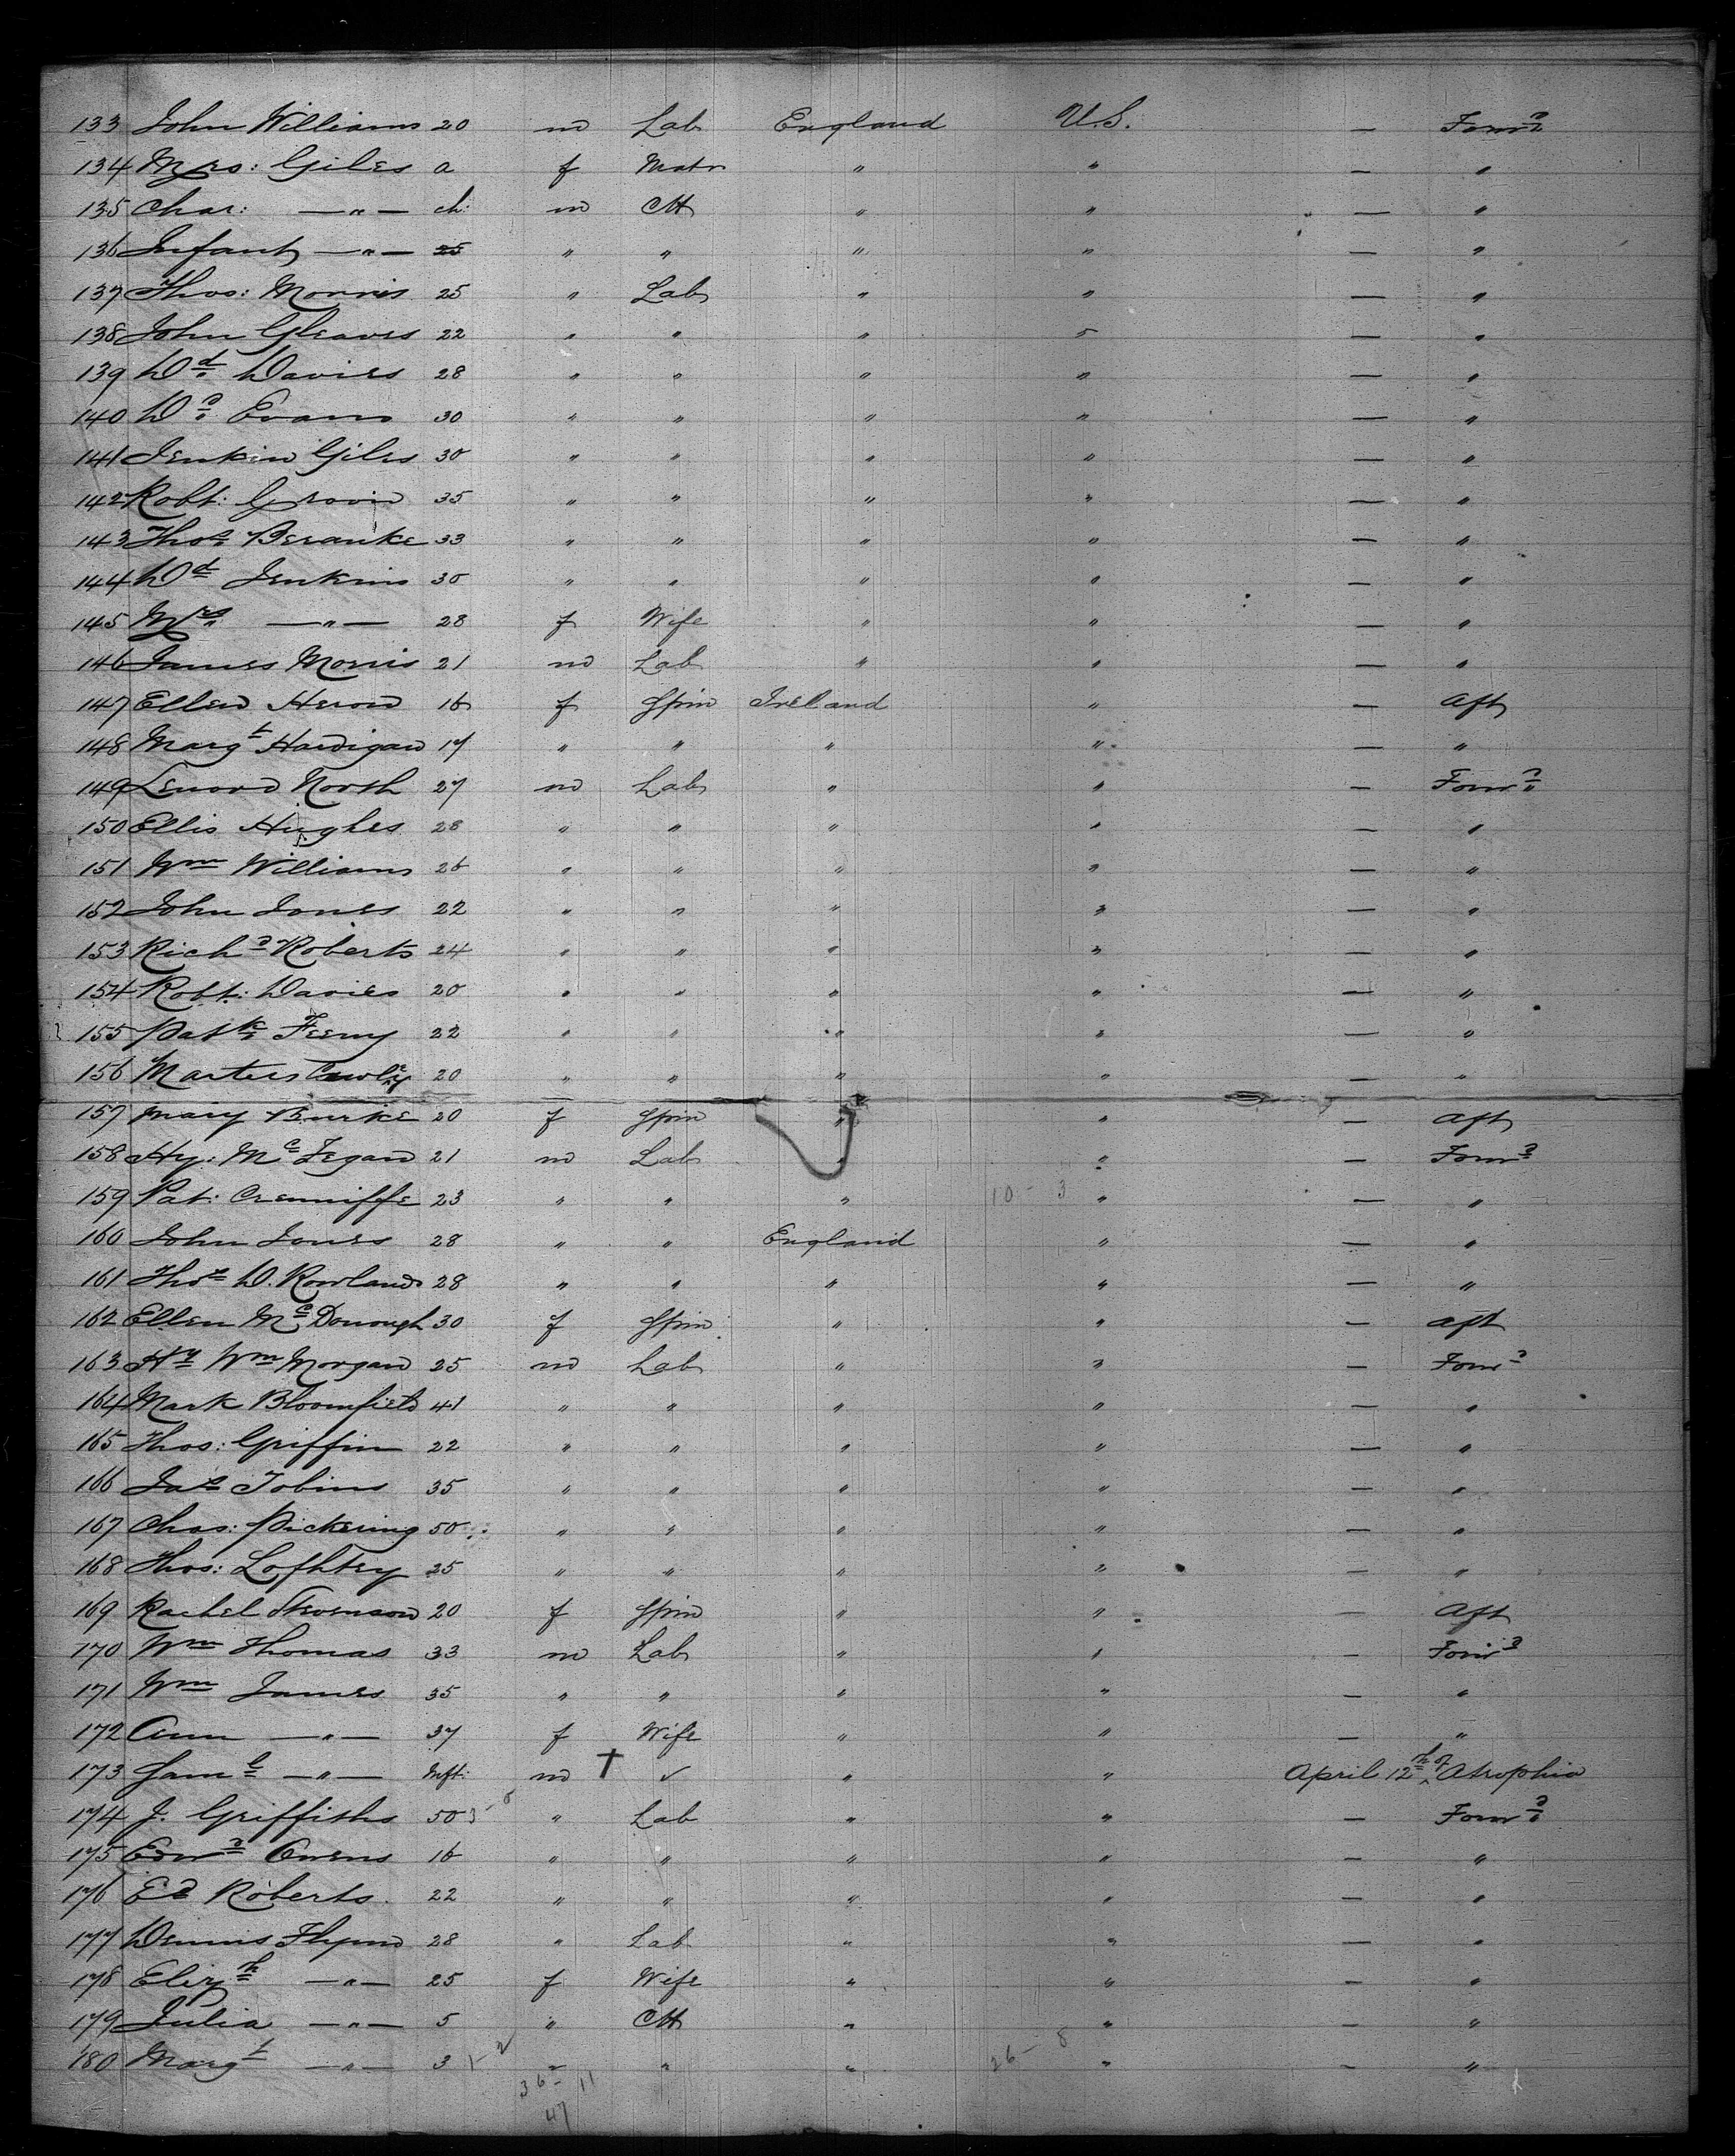 133 John Williams 20 m Lab England U.S. — Forwd
134 Mrs: Giles a f Matr " " — "
135 Char: —"— ch: m Ch " " — "
136 Infant —"— 25 " " " " — "
137 Thos: Morris 25 " Lab " " — "
138 John Gleaves 22 " " " " — "
139 Dd Davies 28 " " " " — "
140 Dd Evans 30 " " " " — "
141 Jenkin Giles 30 " " " " — "
142 Robt: 35 " " " " — "
143 Thos Beranke 33 " " " " — "
144 Dd Jenkins 30 " " " " — "
145 Mrs —"— 28 f Wife " " — "
146 James Morris 21 m Lab " " — "
147 Ellen Heron 16 f Spin Ireland " — Aft
148 Margt Hardigan 17 " " " " — "
149 Lenord North 27 m Lab " " — Forwd
150 Ellis Hughes 28 " " " " — "
151 Wm Williams 26 " " " " — "
152 John Jones 22 " " " " — "
153 Richd Roberts 24 " " " " — "
154 Robt: Davies 20 " " " " — "
155 Patk Feeny 22 " " " " — "
156 20 " " " " — "
157 Mary Burke 20 f Spin " " — Aft
158 Hy: Mc Fegan 21 m Lab " " — Forwd
159 Pat: Crenniffe 23 " " " 10 - 3 " — "
160 John Jones 28 " " England " — "
161 Thos D. Rowlands 28 " " " " — "
162 Ellen McDonough 30 f Spin " " — Aft
163 Hy Wm Morgan 25 m Lab " " — Forwd
164 Mark Bloomfield 41 " " " " — "
165 Thos: Griffin 22 " " " " — "
166 Jas Tobins 35 " " " " — "
167 Chas: Pickering 50 " " " " — "
168 Thos: Lofhtey 25 " " " " — "
169 Rachel Stevenson 20 f Spin " " — Aft
170 Wm Thomas 33 m Lab " " — Forwd
171 Wm James 35 " " " " — "
172 Ann —"— 37 f Wife " " — "
173 Saml —"— Inft: m † ✓ " " April 12th of Atrophia
174 J. Griffiths 50 " Lab " " — Forwd
175 Edwd Owens 16 " " " " — "
176 Ed Roberts 22 " " " " — "
177 Dennis Flynn 28 " Lab " " — "
178 Elizth —"— 25 f Wife " " — "
179 Julia —"— 5 " Ch " " — "
180 Margt —"— 3 1 - 2 " " " 26 - 8 " — "
36 - 11
47